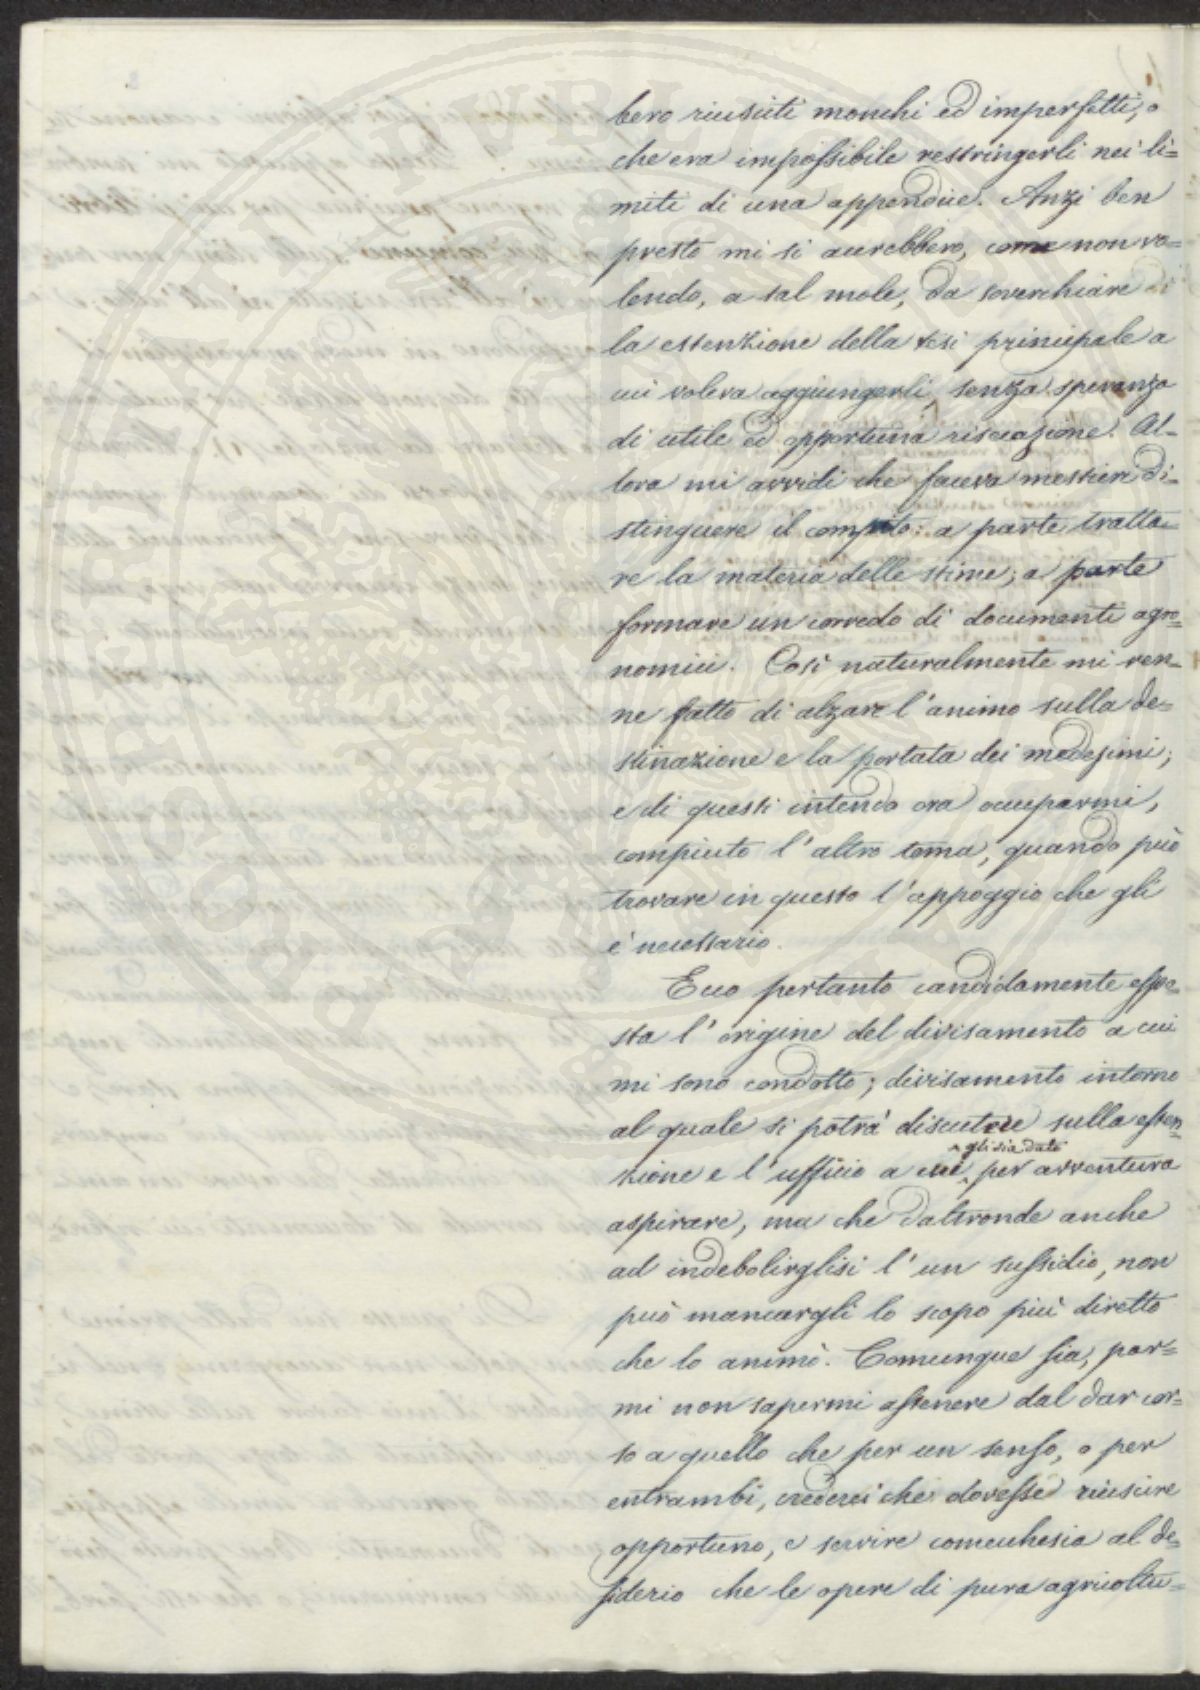 bero riusciti monchi ed imperfetti, o
che era impossibile restringerli nei li=
miti di una appendice. Anzi ben
presto mi si aurebbero, come non vo=
lendo, a tal mole, da soverchiare
la estenzione della tesi principale a
cui voleva aggiungerli, senza speranza
di utile ed opportuna riscazione. Al=
lora mi avvidi che faceva mestieri di=
stinguere il compito: a parte tratta=
re la materia delle stime; a parte
formare un corredo di documenti agro=
nomici. Così naturalmente mi ven=
ne fatto di alzare l'animo sulla de=
stinazione e la portata dei medesimi;
e di questi intendo ora occuparmi,
compiuto l'altro tema, quando può
trovare in questo l'appoggio che gli
è necessario.
Ecco pertanto candidamente espo=
sta l'origine del divisamento a cui
mi sono condotto; divisamento intorno
al quale si potrà discutere sulla esten=
gli sia dato
zione e l'ufficio a cui per avventura
aspirare, ma che daltronde anche
ad indebolirglisi l'un sussidio, non
può mancargli lo scopo più diretto
che lo animò. Comunque sia, par=
mi non sapermi astenere dal dar cor=
so a quello che per un senso, o per
entrambi, crederei che dovesse riuscire
opportuno, e servire comecchesia al de=
siderio che le opere di pura agricoltu=